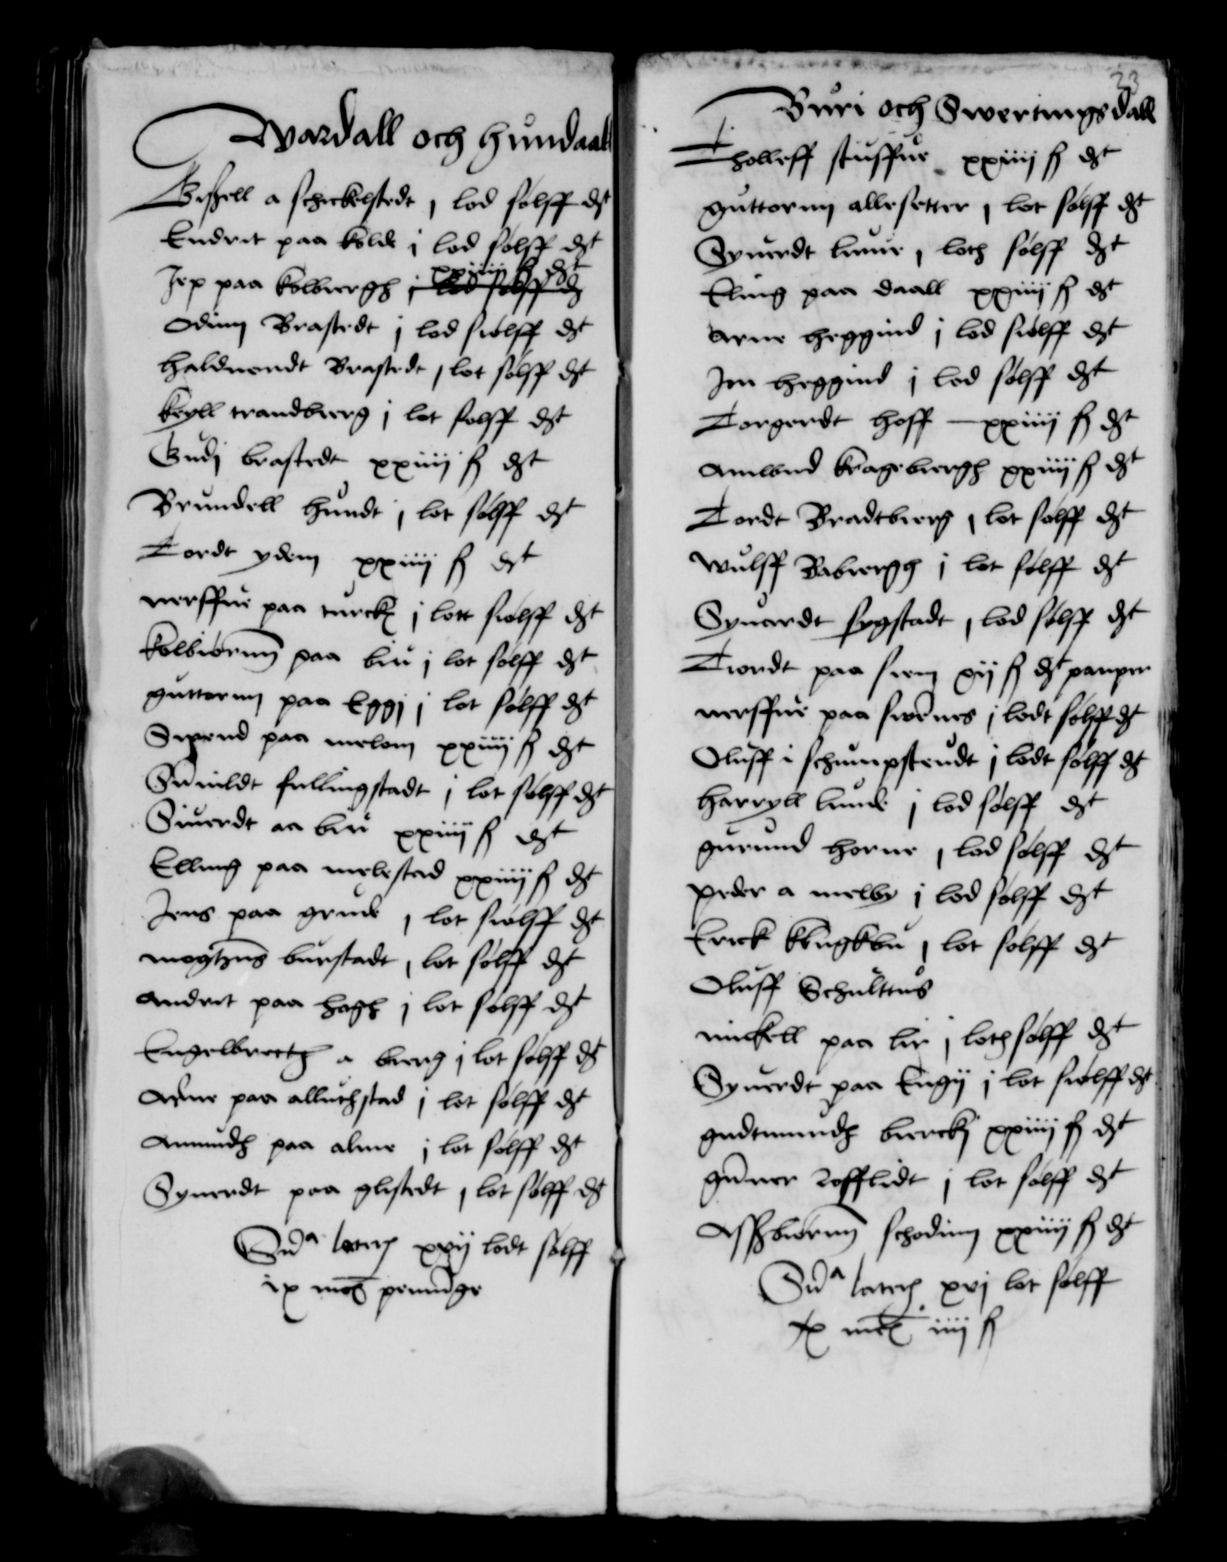 Wardall och hundaall
Gissell a schickelstedt j lod sølff dt
Endrit paa kolde j lod sølff dt
Jep paa kolbiergh j lod sølff dt xxiiii ß dt
Odinn Brastedt j lod siølff dt
haldnendt Brastedt j lot sølff dt
keyll trandbierg j lot sølff dt
Gudj brastedt xxiiii ß dt
Brundell hundt j lot sølff dt
Tordt ydem xxiiii ß dt
nerffue paa turck j lott siølff dt
kolbiørnn paa biu j lot sølff dt
guttorm paa Eggj j lot sølff dt
Sigend paa melom xxiiii ß dt
Gunildt fullingstadt j lot sølff dt
Siuerdt aa biu xxiiii ß dt
Elling paa melestad xxiiii ß dt
Jens paa grude j lot siølff dt
mogens burstadt j lot sølff dt
Andrit paa hagh j lot sølff dt
Engelbrecth a bierg j lot sølff dt
Arne paa alluthstad j lot sølff dt
Amundh paa alme j lot sølff dt
Syuerdt paa glistedt j lot sølff dt
Sum a lateris xvij lodt sølff
ix mck penninge
23
Buri och Swertingsdall
Tholleff stuffue xxiiii ß dt
guttorm allesetter j lot sølff dt
Syuerdt liuue j loth sølff dt
Eling paa daall xxiiii ß dt
Arne heggind j lod siølff dt
Jon heggind j lod sølff dt
Torgerdt hoff xxiiii ß dt
Amwnd kragebiergh xxiiii ß dt
Tordt Bradtbierg j lot sølff dt
wulff Babiergh j lot sølff dt
Syuardt sygstadt j lod sølff dt
Tiordt paa siem xij ß dt pauper
nerffue paa swenes j lodt sølff dt
Oluff i schumpsteudt j lodt sølff dt
harryll lunde j lod sølff dt
gurund horne j lod sølff dt
peder a melby j lod sølff dt
Erick krugkbu j lot sølff dt
Oluff Schulttus
nickell paa lie j loth sølff dt
Syuerdt paa Engij j lot siølff dt
gudtmundh biercki xxiiii ß dt
gunner Rofflidt j lot sølff dt
Assbiørnn schodinn xxiiii ß dt
Sum a lateris xvj lot sølff
x mck iiii ß